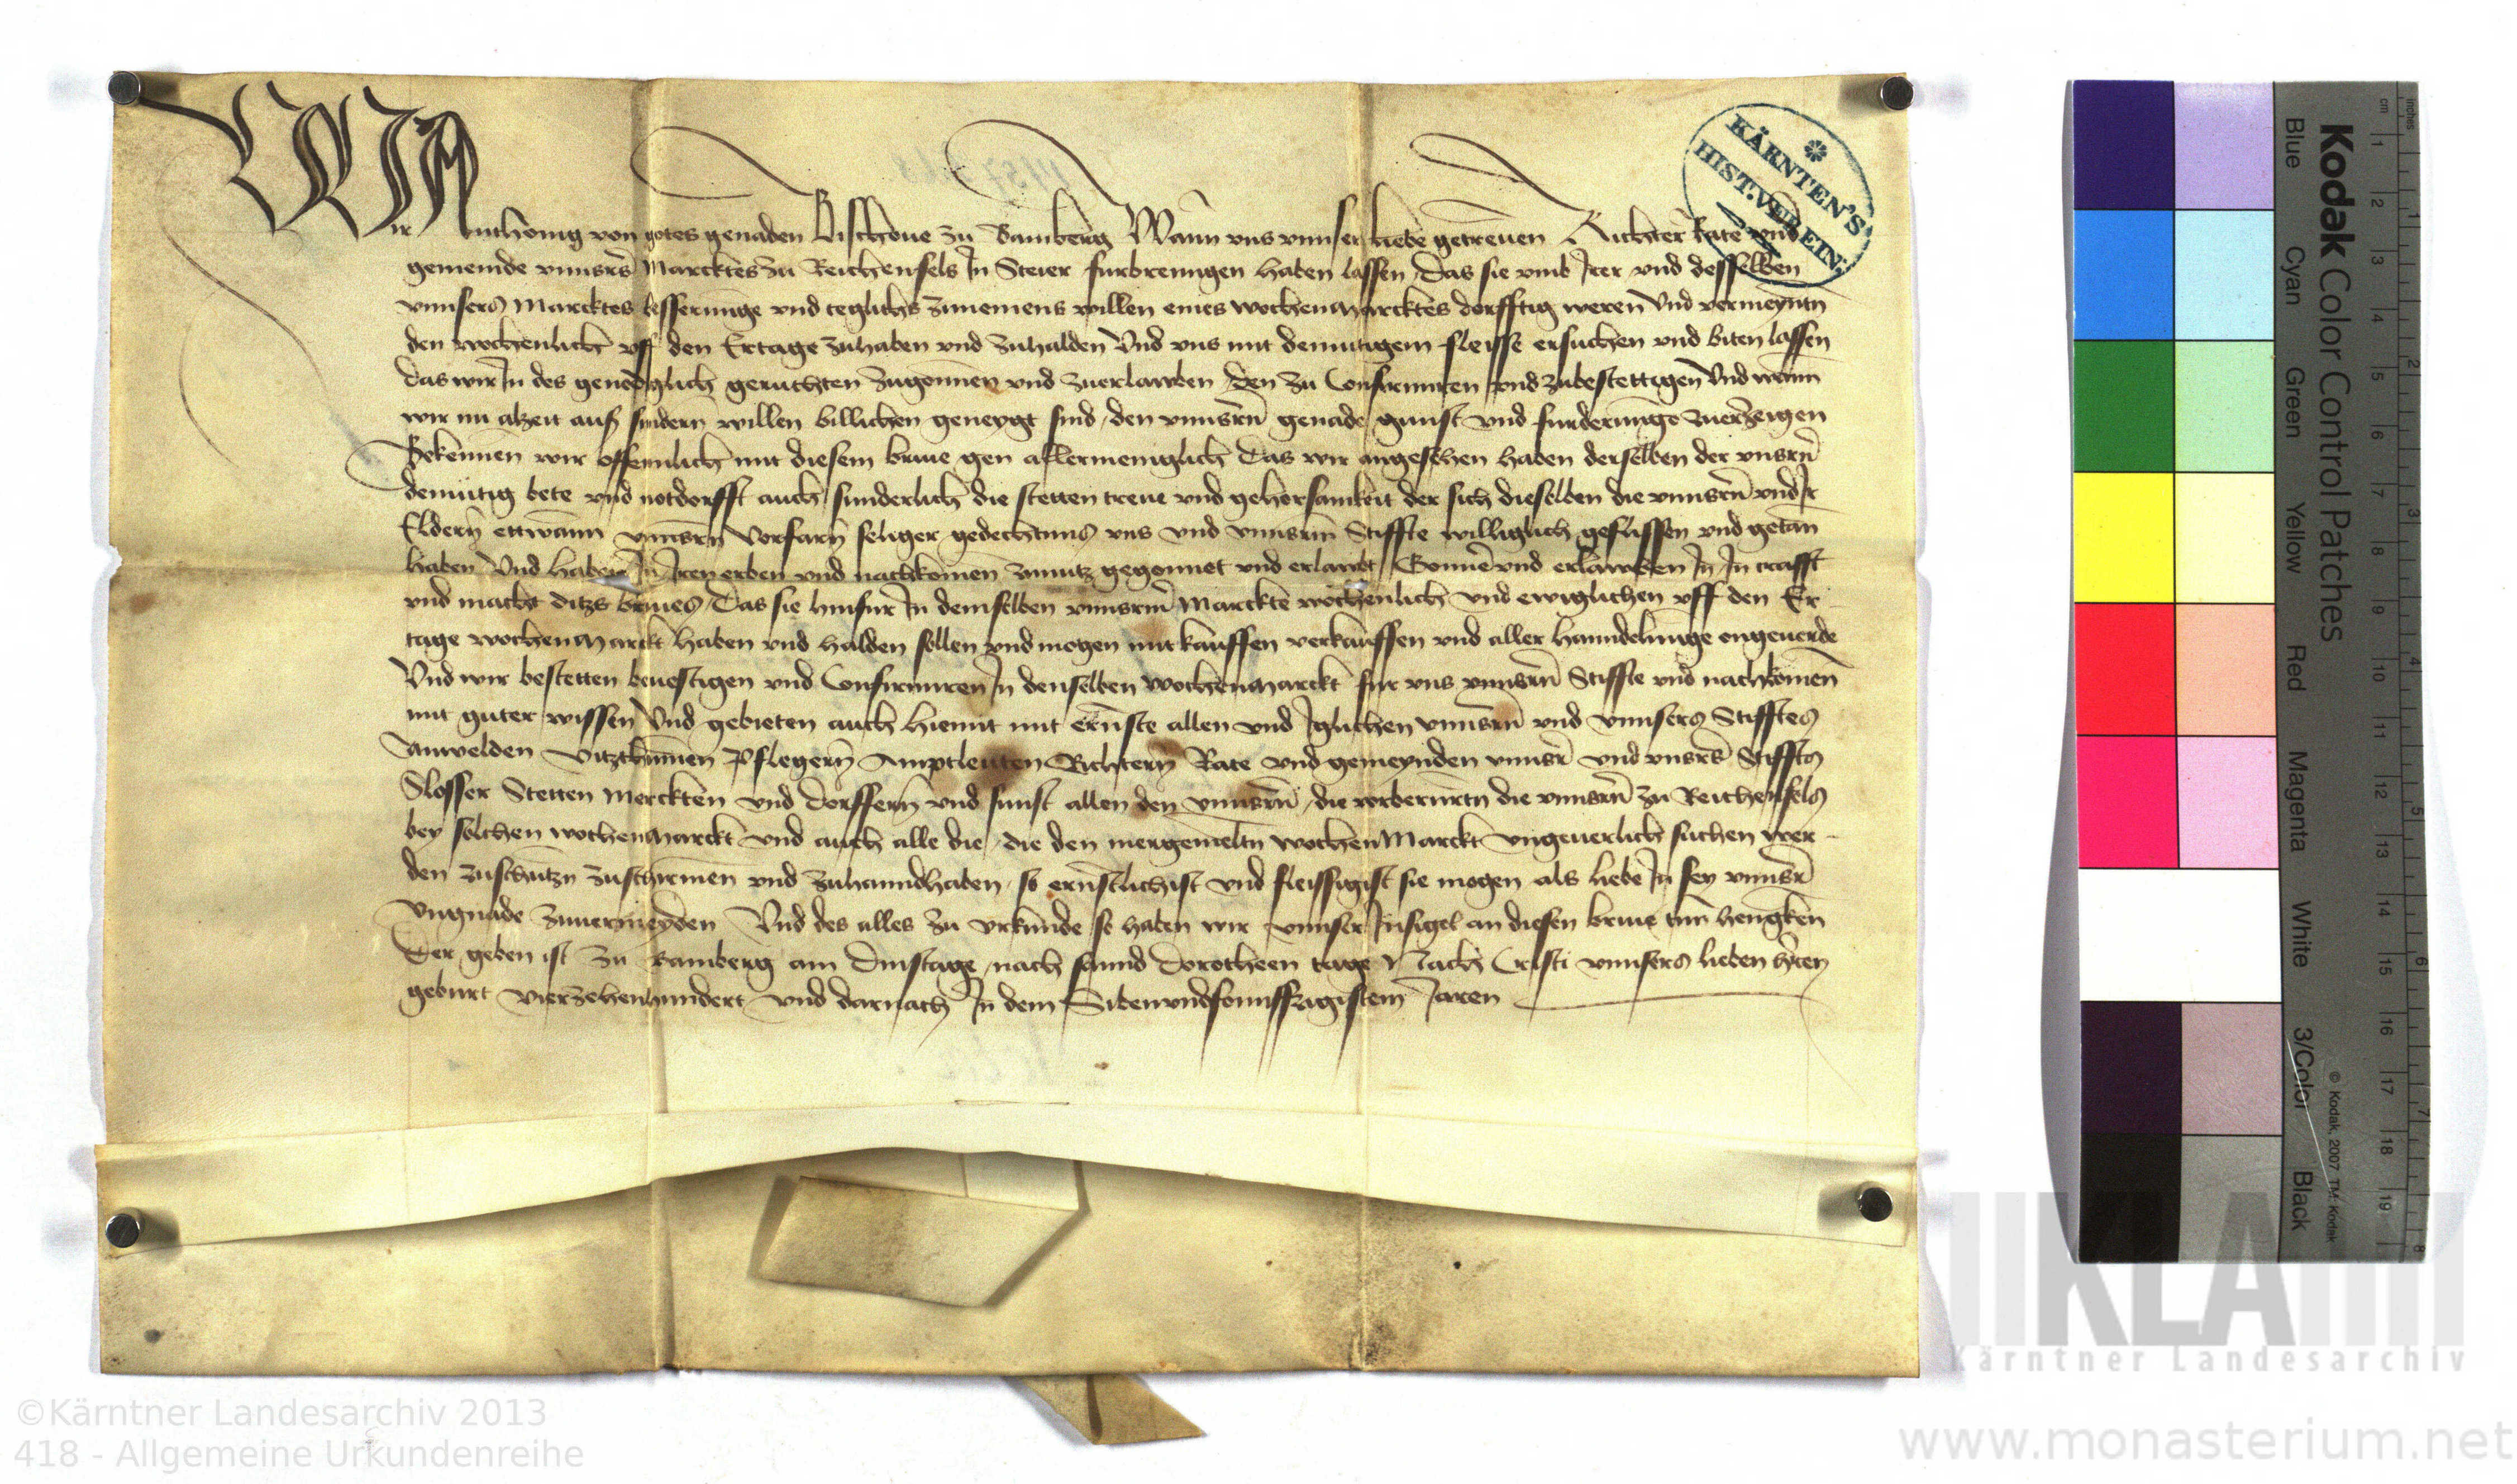 Wir Anthonig von gotes genaden Bischoue zu Bamberg Wann vns vnnser liebe getrewen Richter Rate vnd
gemeinde vnnsers Marcktes zu Reichenfels In Steier furbrenngen haben lassen, Das sie vmb Irer vnd desselben
vnnsers Marcktes besserunge vnd teglichs zunemens willen eines wochenmarcktes dorfftig weren Vnd vermeyntn
den wochenlich vff den Ertage zuhaben vnd zuhalden Vnd vns mit demutigem fleisse ersuchen vnd biten lassen
das wir In des genediglich geruchten zugonnen vnd zuerlawben, den zu Confirmiren vnd zubestettigen Vnd wann
wir nu alzeit auß sundern willen billichen geneygt sind, den vnnsern genade gunst vnd furderunge zuerzeigen
Bekennen wir offennlich mit diesem briue gen allermeniglich Das wir angesehen haben derselben der vnsern
demutig bete vnd notdorfft auch sunderlich die stetten treue vnd gehorsamkeit der sich dieselben die vnnsern vnd Ir
Eldern ettwann vnnsern Vorfarn seliger gedechtnus vns vnd vnnserm Stiffte williglich geflissen vnd getan
haben Vnd haben In Iren erben vnd nachkomen zunutz gegonnet vnd erlawbt, Gonnen vnd erlawben In, In crafft
vnd macht ditzs briues, Das sie hinfur In demselben vnnserm Marckte wochenlich vnd ewiglichen vff den Er
tage wochenmarckt haben vnd halden sollen vnd mogen mit kauffen verkauffen vnd aller hanndelunge ongeuerde
Vnd wir bestetten beuestigen vnd Confirmiren In denselben wochenmarckt fur vns vnnsern Stiffte vnd nachkomen
mit guter wissen Vnd gebieten auch hiemit mit ernste allen vnd Iglichen vnnsern vnd vnnsers Stifftes
Anwelden Vitzthumen Pflegern Amptleuten Richtern Rate vnd gemeynden vnnser vnd vnsers Stiffts
Slosser Stetten Merckten vnd Dorffern vnd sunst allen den vnnsern, die vorberurtn die vnnsern zu Reichenfels
bey solchen wochenmarckt vnd auch alle die, die den mergemeltn wochenmarckt vngeuerlich suchen wer-
den zuschutzn zuschirmen vnd zuhanndhaben, so ernstlichist vnd fleissigist sie mogen als liebe In sey vnnser
Vngnade zuuermeyden Vnd des alles zu vrkunde so haben wir vnnser Insigel an diesen briue tun hengken
Der geben ist zu Bamberg am Dinstage nach sannd Dorotheen tage Nach Cristi vnnsers lieben herren
geburt Vierzehenhundert vnd darnach In dem Sibenvndfonffzigistem Jaren
KÄRNTEN'S
HIST. VEREIN.
Kodak Color Control Patches
Blue Cyan Green Yellow Red Magenta White 3/Color Black
© Kodak, 2007 TM: Kodak
cm 1 2 3 4 5 6 7 8 9 10 11 12 13 14 15 16 17 18 19
inches 1 2 3 4 5 6 7 8
KLA
Kärntner Landesarchiv
©Kärntner Landesarchiv 2013
418 - Allgemeine Urkundenreihe
www.monasterium.net